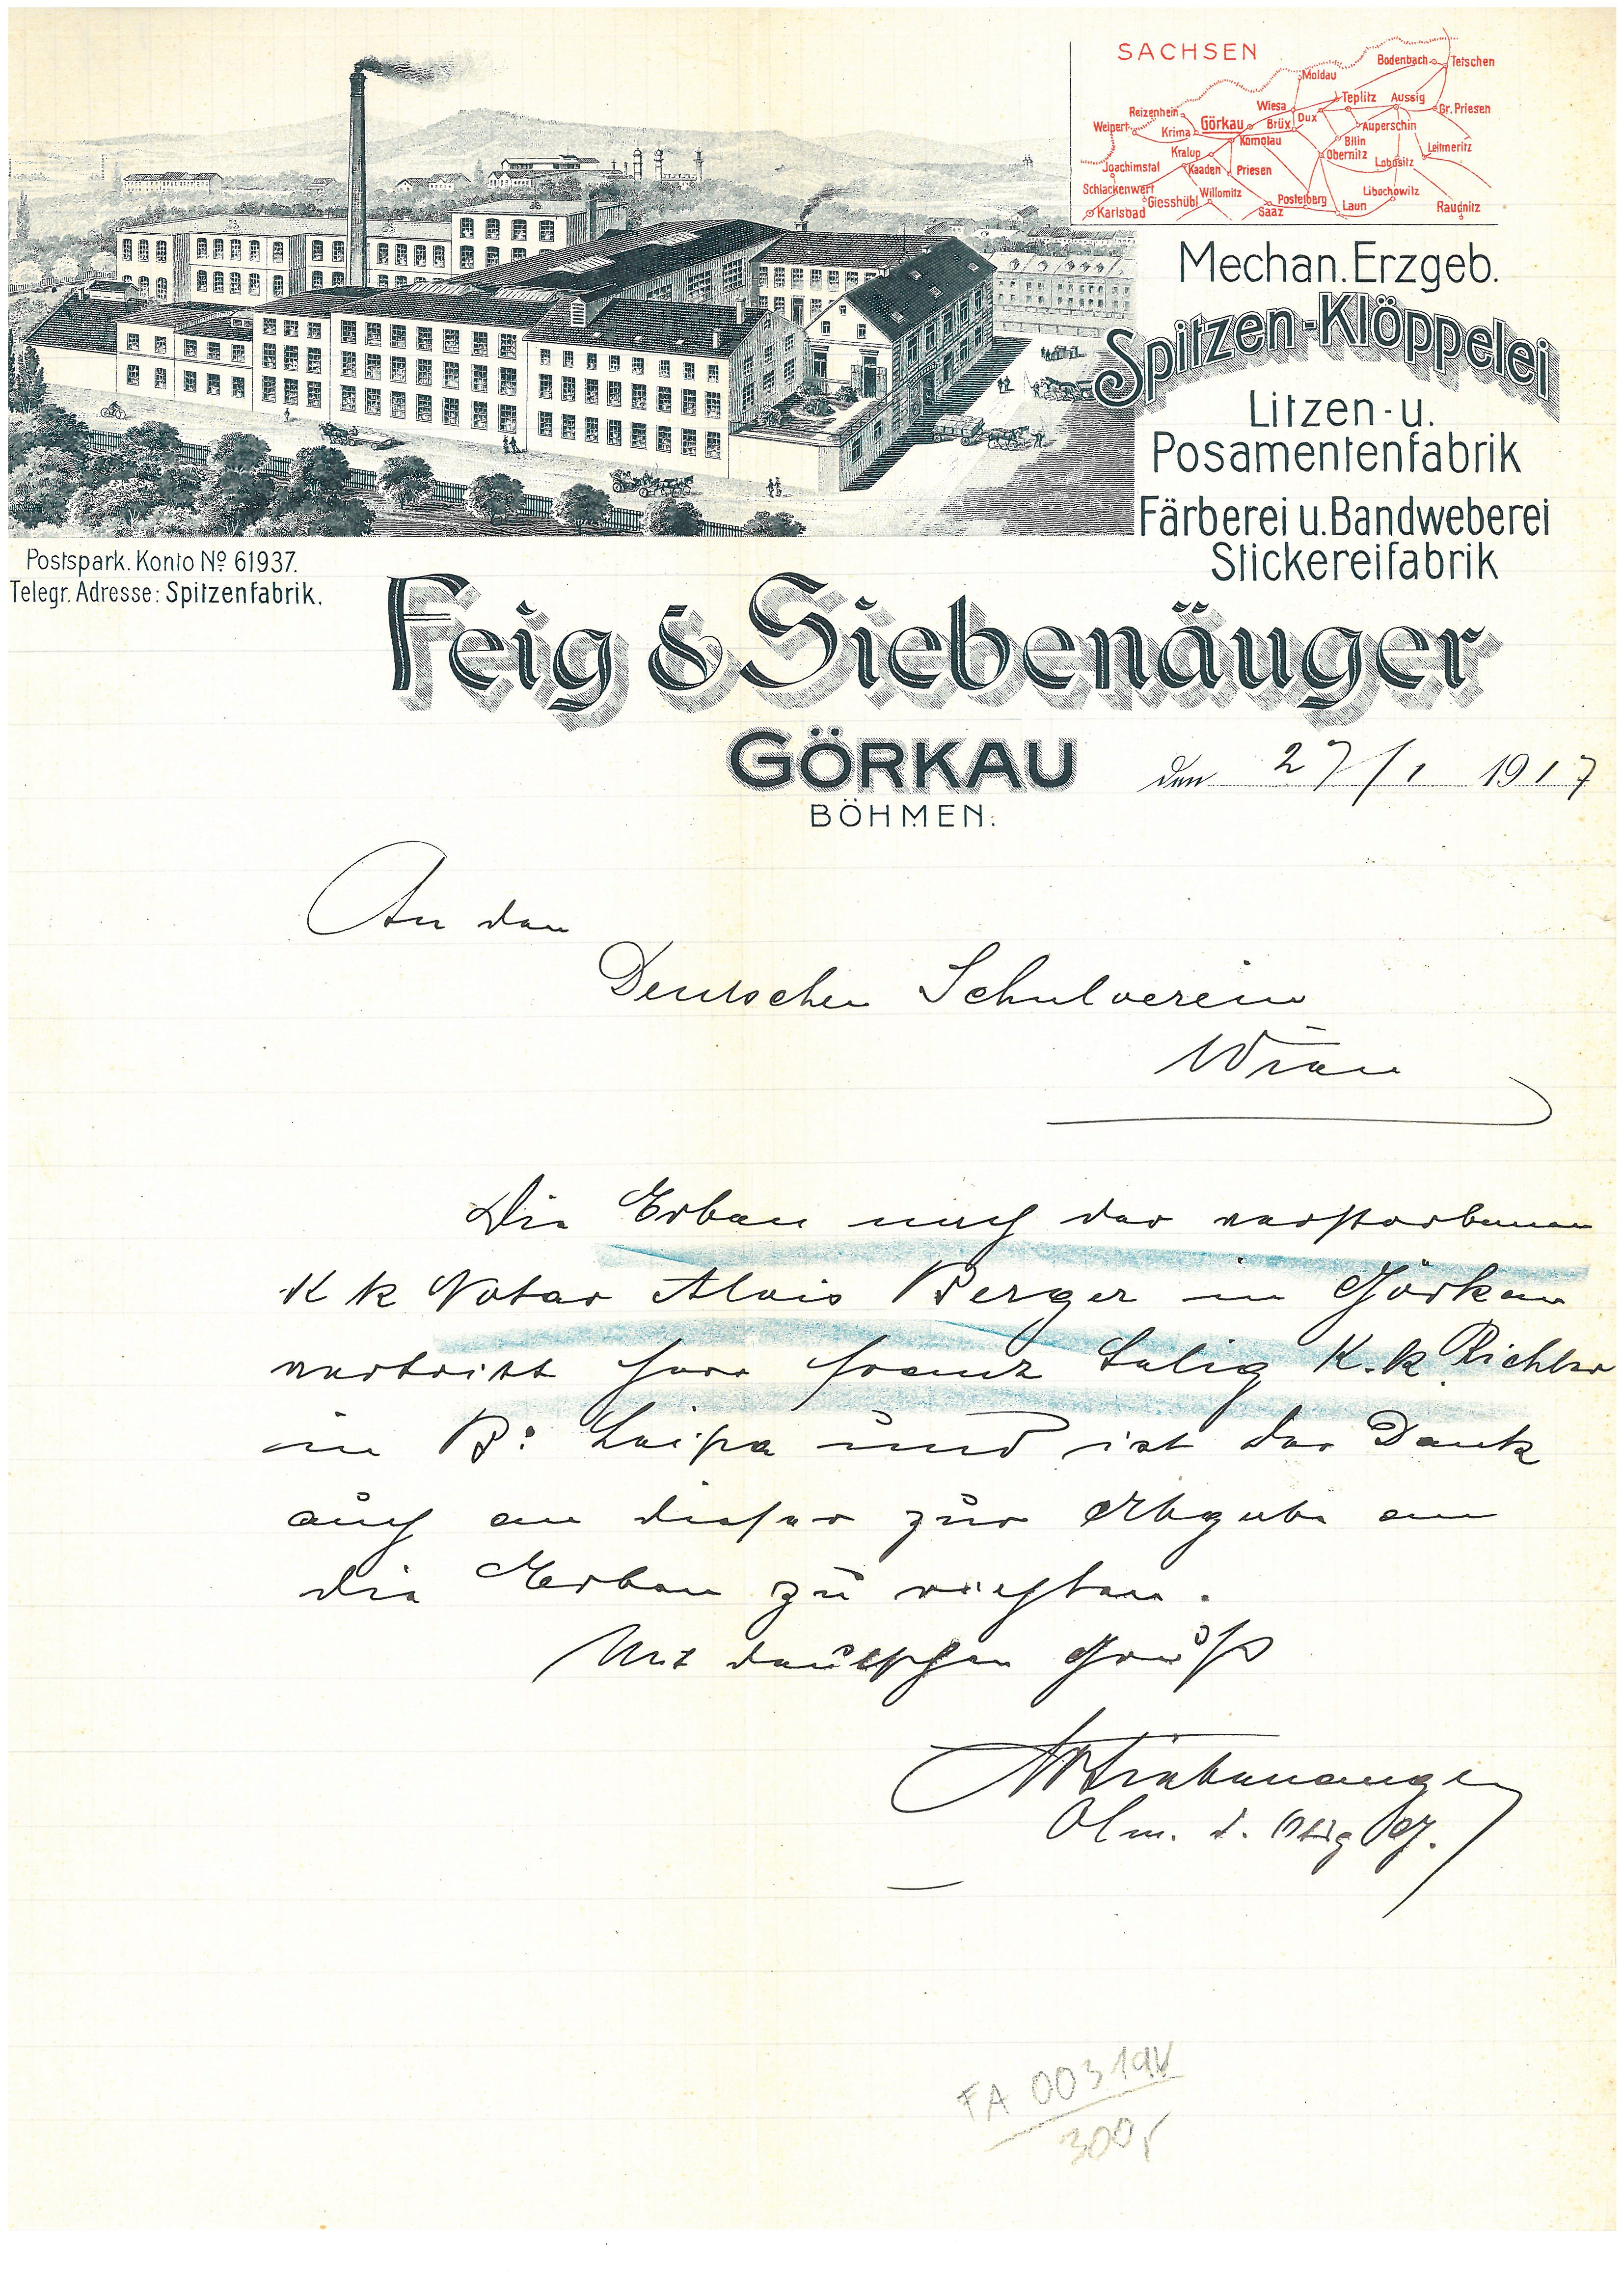 SACHSEN
Bodenbach
Tetschen
Moldau
Teplitz
Aussig
Wiesa
Gr. Priesen
Reizenhein
Dux
Weipert
Görkau
Brüx
Auperschin
Krima
Komotau
Bilin
Leitmeritz
Kralup
Obernitz
Lobositz
Joachimstal
Kaaden
Priesen
Schlackenwert
Willomitz
Libochowitz
Giesshübl
Postelberg
Laun
Raudnitz
Karlsbad
Saaz
Mechan. Erzgeb.
Spitzen-Klöppelei
Litzen- u.
Posamentenfabrik
Färberei u. Bandweberei
Stickereifabrik
Postspark. Konto No 61937.
Telegr. Adresse: Spitzenfabrik.
Feig & Siebenäuger
GÖRKAU
BÖHMEN.
den 27/1 1917
An den
Deutschen Schulverein
Wien
Die Erben nach der verstorbenen
K k Notar Alois Berger in Görkau
vertritt Herr Franz Salig K. k. Richter
in B: Leipa und ist der Dank
auch an dieser zur Abgabe an
die Erben zu richten.
Mit deutschen Gruß
Siebenäuger
Obm. d.
FA 003194
300,